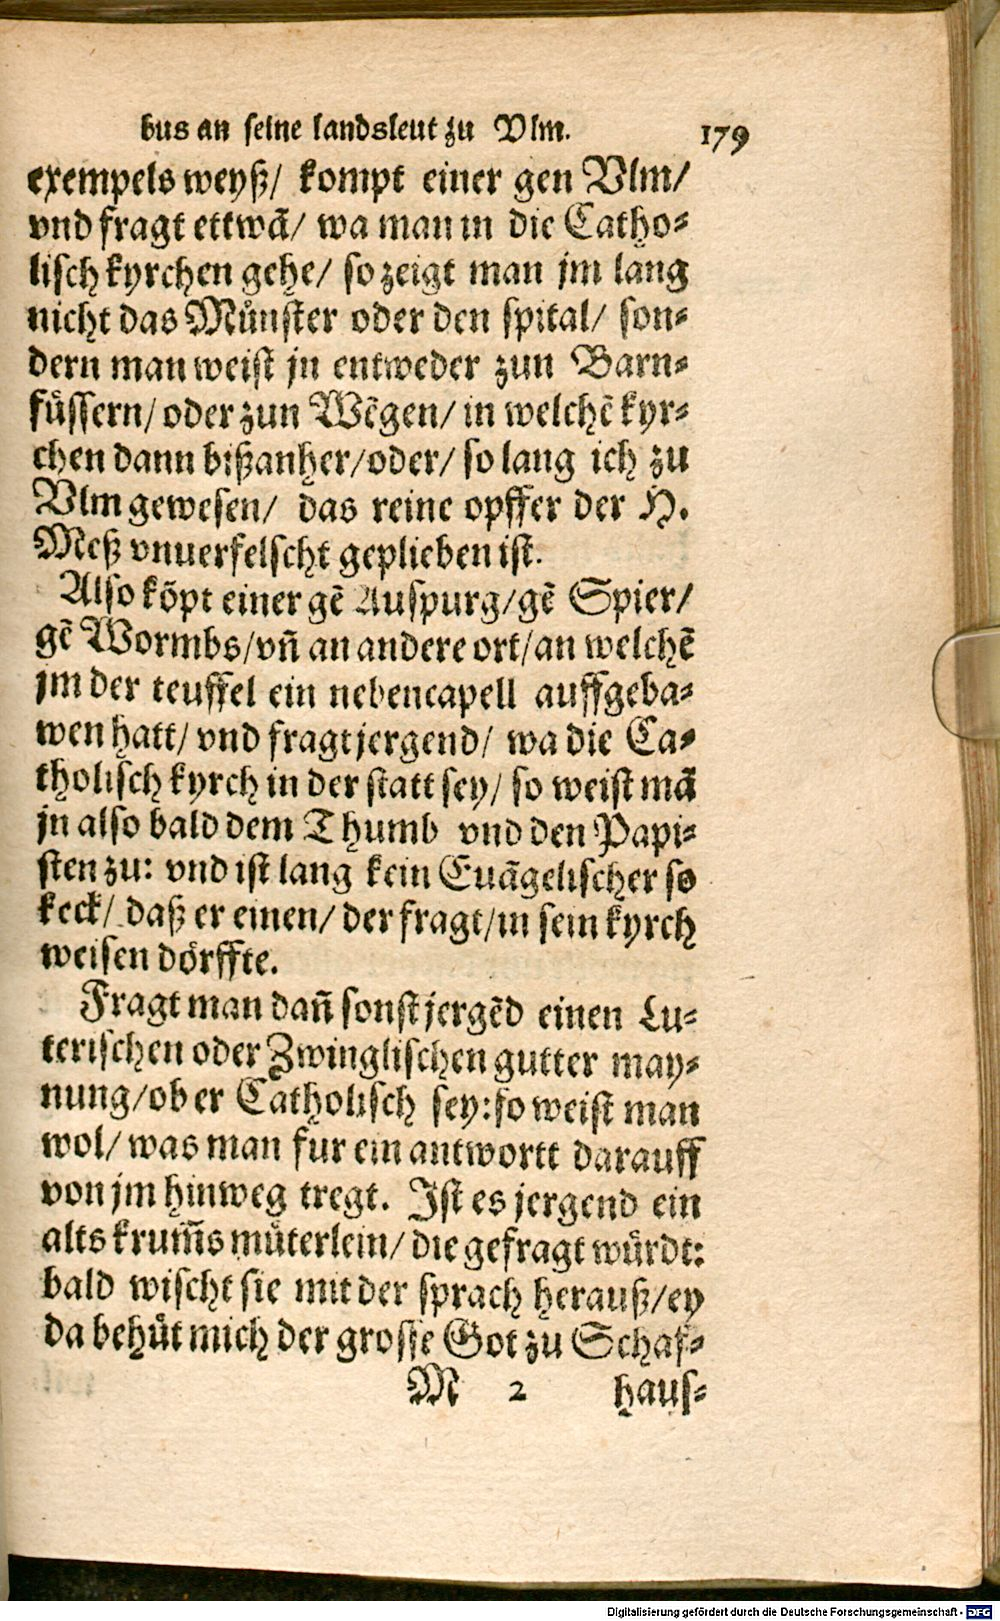 bus an seine landsleut zu Vlm. 179
exempels weyß/ kompt einer gen Vlm/
vnd fragt ettwā/ wa man in die Catho-
lisch kyrchen gehe/ so zeigt man jm lang
nicht das Münster oder den spital/ son-
dern man weist jn entweder zun Barn-
füssern/ oder zun Wēgen/ in welchē kyr-
chen dann bißanher/oder/ so lang ich zu
Vlm gewesen/ das reine opffer der H.
Meß vnuerfelscht geplieben ist.
Also kōpt einer gē Auspurg/gē Spier/
gē Wormbs/vn̄ an andere ort/an welchē
jm der teuffel ein nebencapell auffgeba-
wen hatt/ vnd fragt jergend/ wa die Ca-
tholisch kyrch in der statt sey/ so weist mā
jn also bald dem Thumb vnd den Papi-
sten zu: vnd ist lang kein Euāgelischer so
keck/ daß er einen/ der fragt/in sein kyrch
weisen dörffte.
Fragt man dan̄ sonst jergēd einen Lu-
terischen oder Zwinglischen gutter may-
nung/ob er Catholisch sey:so weist man
wol/ was man fur ein antwortt darauff
von jm hinweg tregt. Ist es jergend ein
alts krum̄s müterlein/ die gefragt würdt:
bald wischt sie mit der sprach herauß/ey
da behüt mich der grosse Got zu Schaf-
M 2 haus-
Digitalisierung gefördert durch die Deutsche Forschungsgemeinschaft - DFG